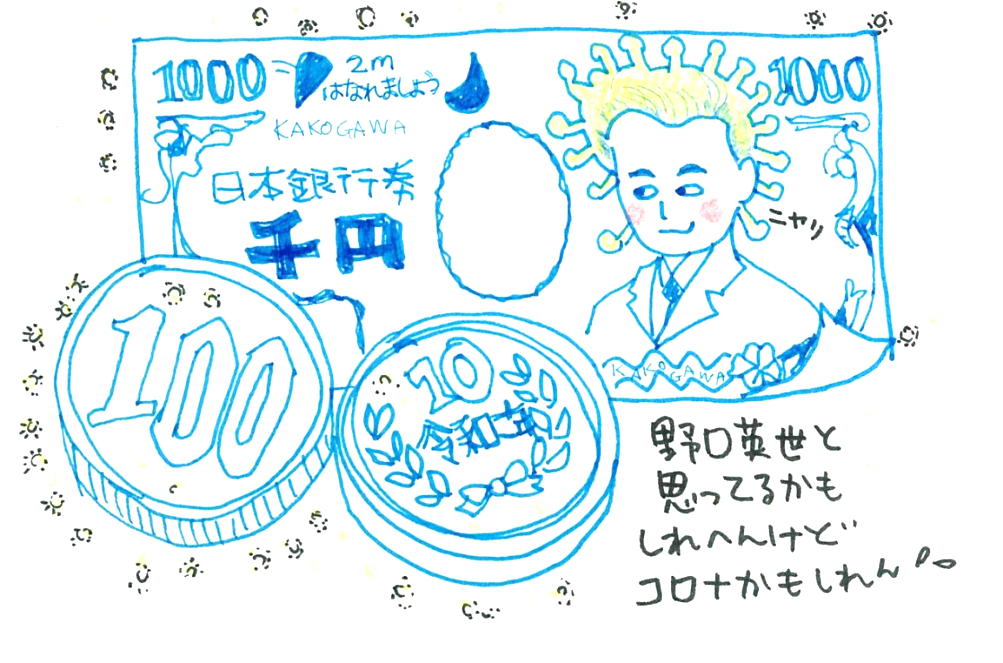 1000
2m
はなれましょう
1000
KAKOGAWA
日本銀行券
千円
ニヤリ
KAKOGAWA
100
10
野口英世と
思ってるかも
しれへんけど
コロナかもしれん